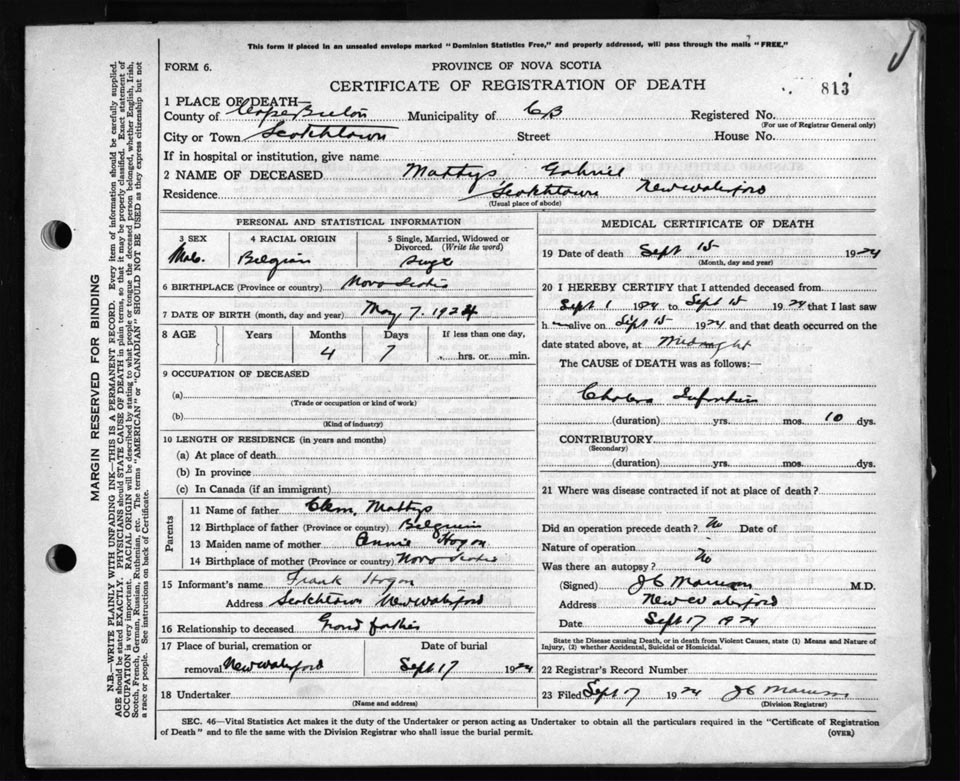 This form if placed in an unsealed envelope marked "Dominion Statistics Free," and properly addressed, will pass through the mails "FREE."
FORM 6.
PROVINCE OF NOVA SCOTIA
CERTIFICATE OF REGISTRATION OF DEATH
813
1 PLACE OF DEATH—
County of Cape Breton Municipality of CB Registered No.
(For use of Registrar General only)
City or Town Scotchtown Street House No.
If in hospital or institution, give name
2 NAME OF DECEASED Mattys Gabriel
Residence Scotchtown New Waterford
(Usual place of abode)
PERSONAL AND STATISTICAL INFORMATION
3 SEX 4 RACIAL ORIGIN 5 Single, Married, Widowed or Divorced. (Write the word)
Male Belgian Single
6 BIRTHPLACE (Province or country) Nova Scotia
7 DATE OF BIRTH (month, day and year) May 7. 1924
8 AGE Years Months Days If less than one day,
4 7 hrs. or min.
9 OCCUPATION OF DECEASED
(a)
(Trade or occupation or kind of work)
(b)
(Kind of industry)
10 LENGTH OF RESIDENCE (in years and months)
(a) At place of death
(b) In province
(c) In Canada (if an immigrant)
Parents
11 Name of father Clem, Mattys
12 Birthplace of father (Province or country) Belguim
13 Maiden name of mother Annie Hogan
14 Birthplace of mother (Province or country) Nova Scotia
15 Informant's name Frank Hogan
Address Scotchtown New Waterford
16 Relationship to deceased Grand father
17 Place of burial, cremation or removal New Waterford Date of burial Sept 17 1924
18 Undertaker
(Name and address)
MEDICAL CERTIFICATE OF DEATH
19 Date of death Sept 15 1924
(Month, day and year)
20 I HEREBY CERTIFY that I attended deceased from
Sept 1 1924 to Sept 15 1924 that I last saw
h alive on Sept 15 1924 and that death occurred on the
date stated above, at Midnight
The CAUSE of DEATH was as follows:—
Cholera Infantum
(duration) yrs. mos. 10 dys.
CONTRIBUTORY
(Secondary)
(duration) yrs. mos. dys.
21 Where was disease contracted if not at place of death?
Did an operation precede death? No Date of
Nature of operation
Was there an autopsy? No
(Signed) J C M.D.
Address New Waterford
Date Sept 17 1924
State the Disease causing Death, or in death from Violent Causes, state (1) Means and Nature of
Injury, (2) whether Accidental, Suicidal or Homicidal.
22 Registrar's Record Number
23 Filed Sept 17 1924 J C
(Division Registrar)
SEC. 46—Vital Statistics Act makes it the duty of the Undertaker or person acting as Undertaker to obtain all the particulars required in the "Certificate of Registration
of Death" and to file the same with the Division Registrar who shall issue the burial permit. (OVER)
MARGIN RESERVED FOR BINDING
N.B.—WRITE PLAINLY WITH UNFADING INK—THIS IS A PERMANENT RECORD. Every item of information should be carefully supplied.
AGE should be stated EXACTLY. PHYSICIANS should STATE CAUSE OF DEATH in plain terms, so that it may be properly classified. Exact statement of
OCCUPATION is very important. RACIAL ORIGIN will be described by stating to what people or tongue the deceased person belonged, whether English, Irish,
Scotch, French, German, Russian, Ruthenian, etc. The terms "AMERICAN" or "CANADIAN" SHOULD NOT BE USED as they express citizenship but not
a race or people. See instructions on back of Certificate.